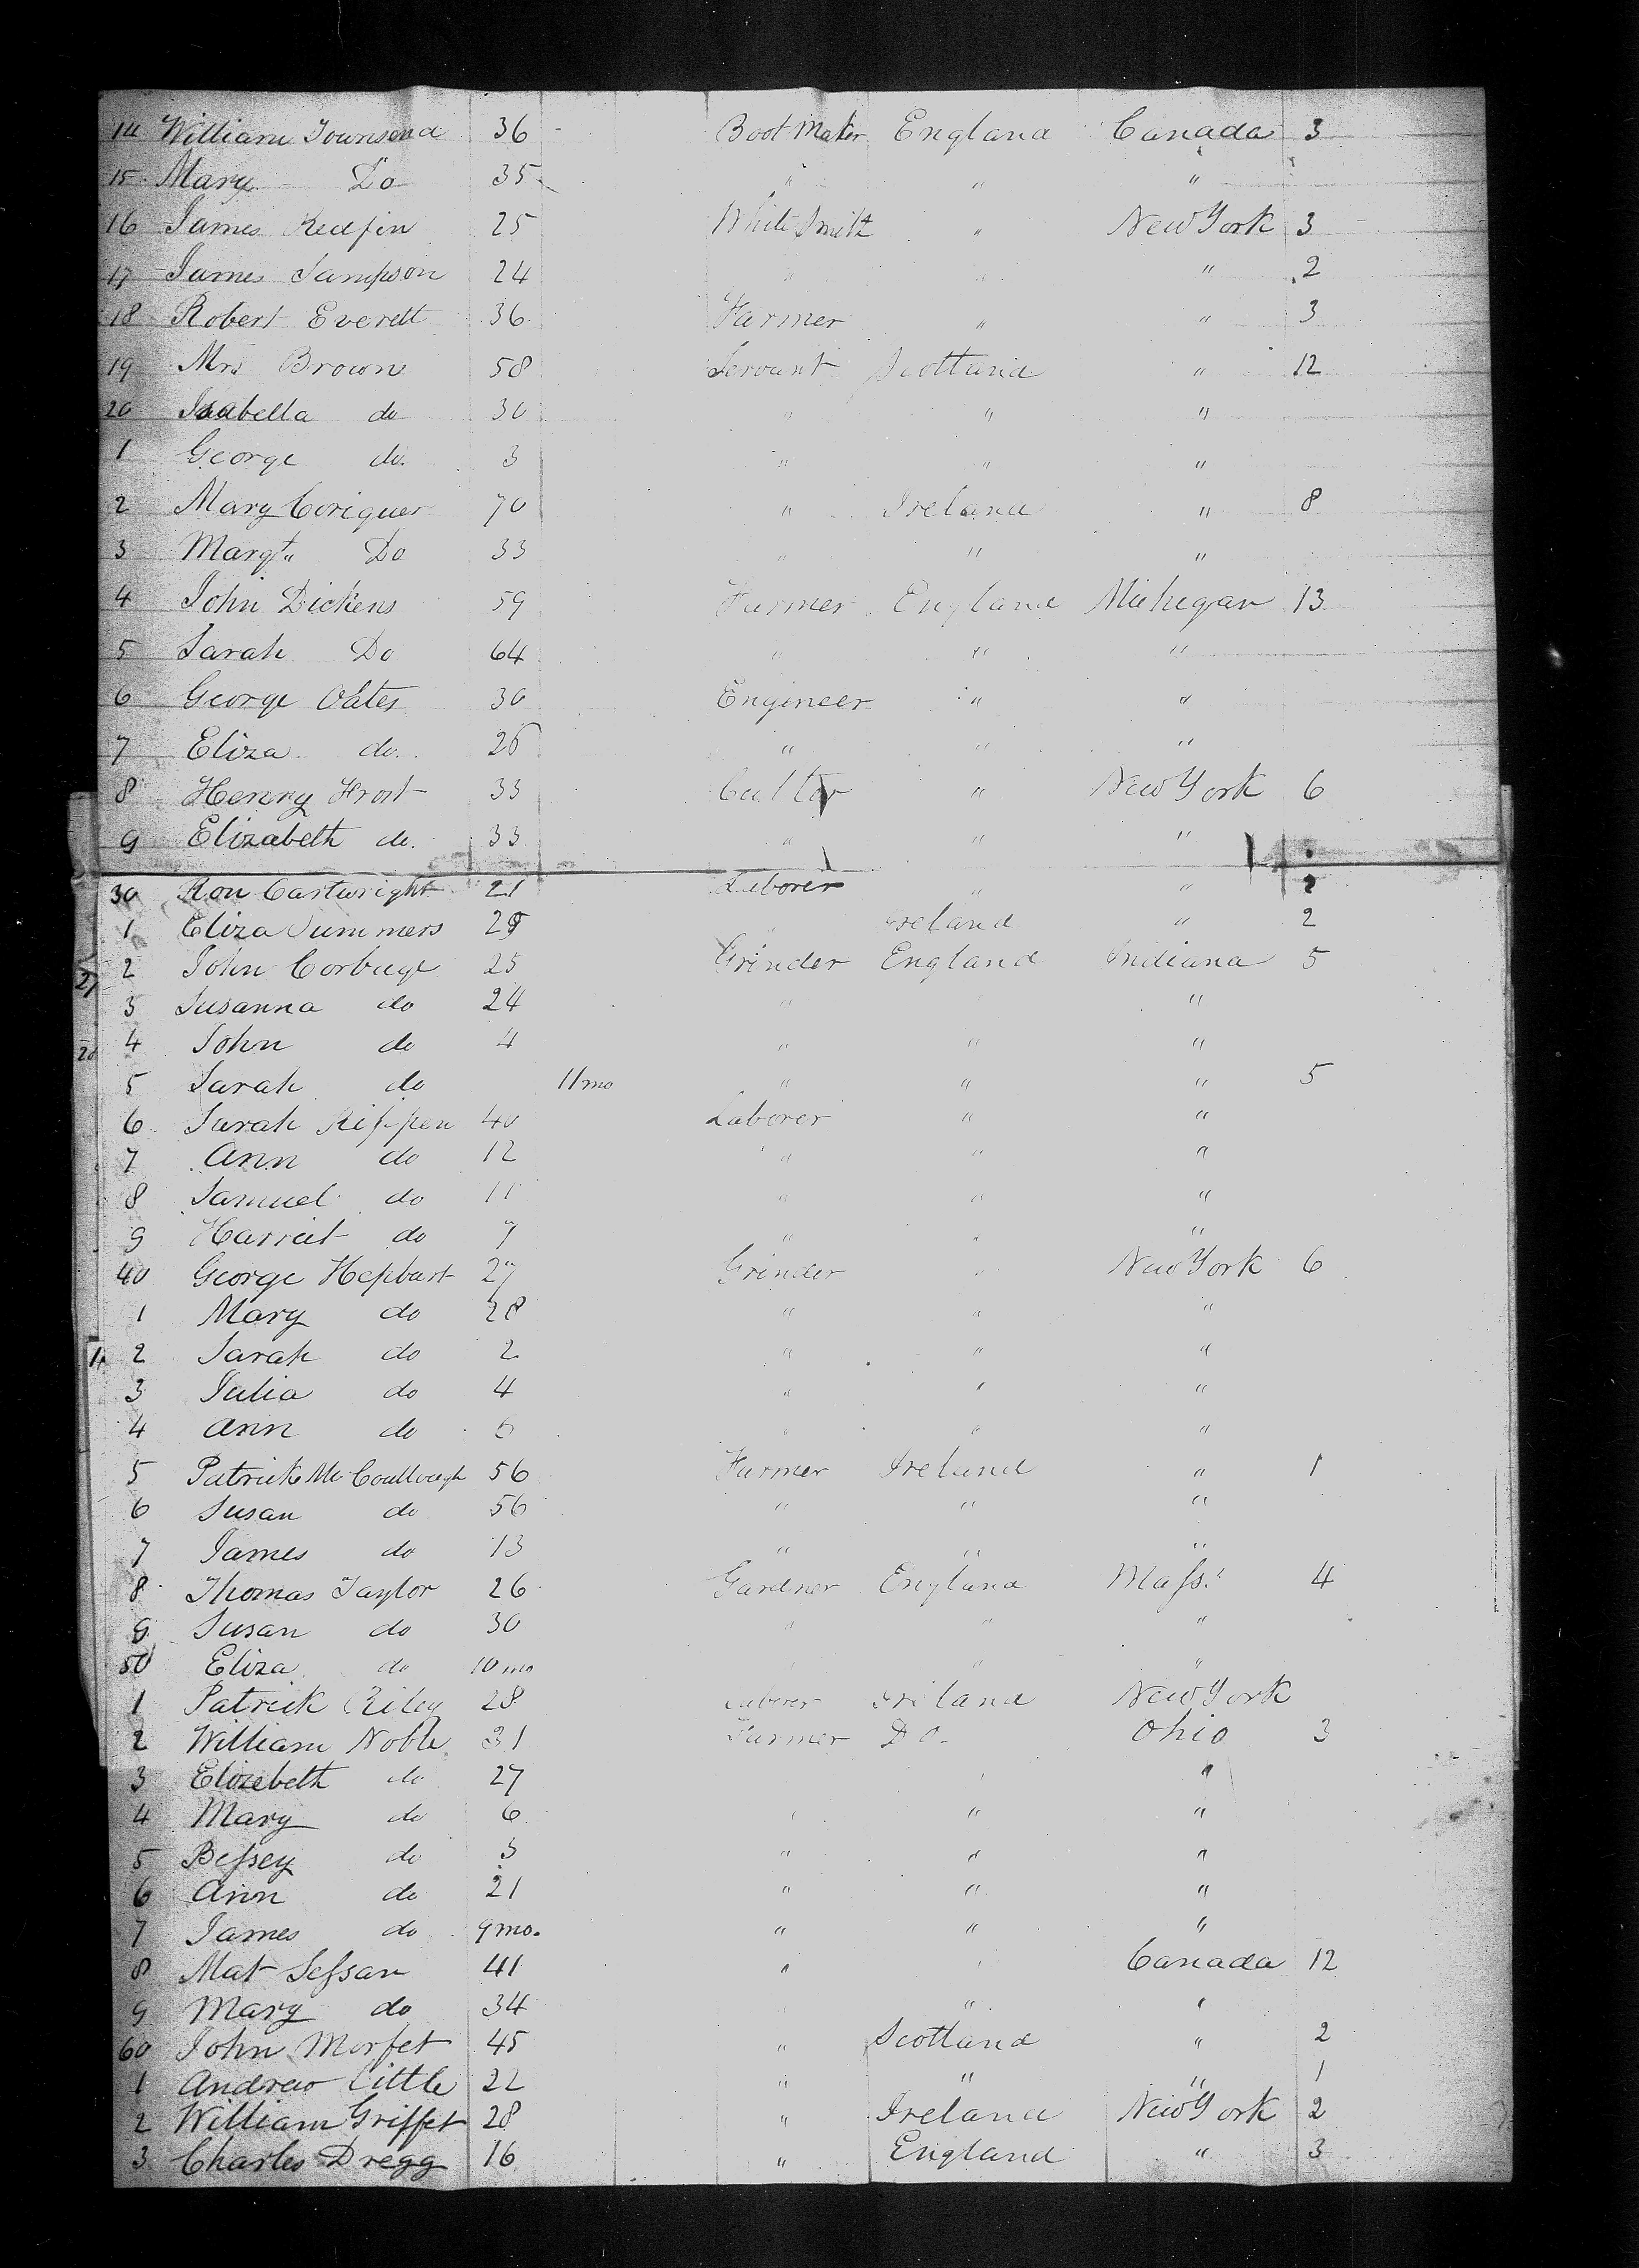 14 William Townsend 36 Boot Maker England Canada 3
15 Mary Do 35 " " "
16 James Redfin 25 White Smith " New York 3
17 James Sampson 24 " " " 2
18 Robert Everett 36 Farmer " " 3
19 Mrs Brown 58 Servant Scotland " 12
20 Isabella do 30 " " "
1 George do. 3 " " "
2 Mary Coriguer 70 " Ireland " 8
3 Margt. Do 33 " " "
4 John Dickens 59 Farmer England Michigan 13
5 Sarah Do 64 " " "
6 George Oates 30 Engineer " "
7 Eliza do. 26 " " "
8 Henry Frost 33 " New York 6
9 Elizabeth do. 33 " " "
30 Ron Cartwright 21 Laborer " " 2
1 Eliza Summers " Ireland " 2
2 John Corbuge 25 Grinder England Indiana 5
3 Susanna do 24 " "
4 John do 4 " " "
5 Sarah do 11mo " " " 5
6 Sarah Rippen 40 Laborer " "
7 Ann do 12 " " "
8 Samuel do 11 " " "
9 Harriet do 7 " " "
40 George Hepburt 27 Grinder " New York 6
1 Mary do 28 " " "
2 Sarah do 2 " " "
3 Julia do 4 " " "
4 Ann do " " "
5 Patrick McCoullough 56 Farmer Ireland " 1
6 Susan do 56 " " "
7 James do 13 " " "
8 Thomas Taylor 26 Gardner England Mass. 4
9 Susan do 30 " " "
50 Eliza do 10 mo " " "
1 Patrick Riley 28 Laborer Ireland New York
2 William Noble 31 Farmer Do. Ohio 3
3 Elizebeth do 27 " "
4 Mary do 6 " " "
5 Bessey do 3 " " "
6 Ann do 21 " " "
7 James do 9mo. " " "
8 Mat Sessan 41 " " Canada 12
9 Mary do 34 " " "
60 John Morfet 45 " Scotland " 2
1 Andrew Little 22 " " " 1
2 William Griffet 28 " Ireland New York 2
3 Charles Dregg 16 " England " 3